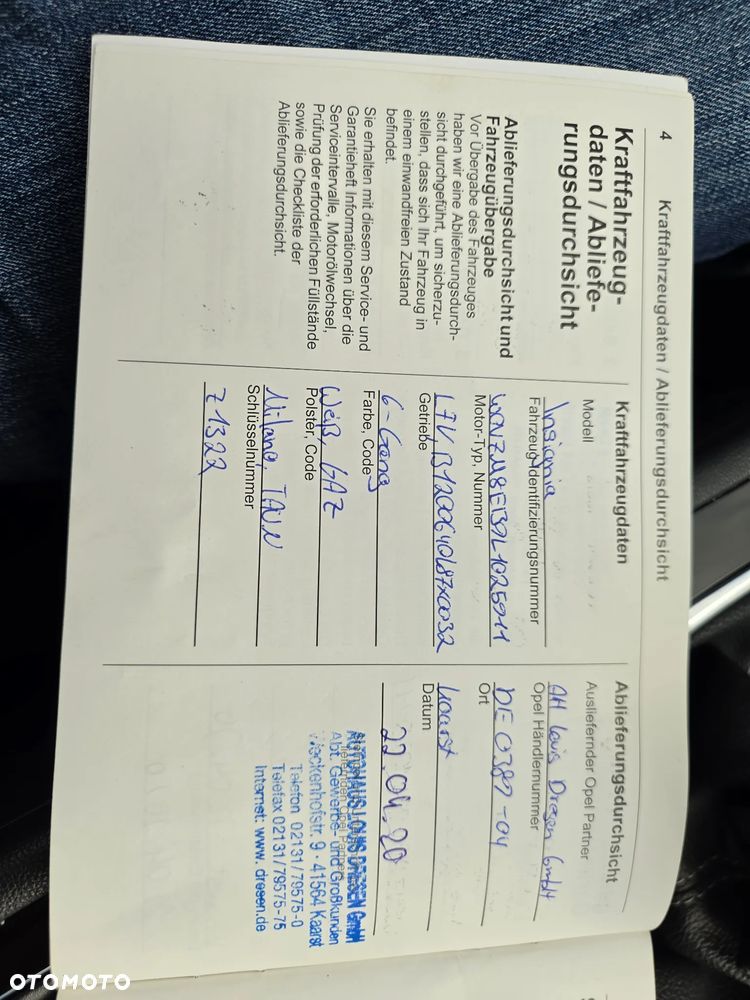 4
Kraftfahrzeugdaten / Ablieferungsdurchsicht
Kraftfahrzeug-
daten / Abliefe-
rungsdurchsicht
Ablieferungsdurchsicht und
Fahrzeugübergabe
Vor Übergabe des Fahrzeuges
haben wir eine Ablieferungsdurch-
sicht durchgeführt, um sicherzu-
stellen, dass sich Ihr Fahrzeug in
einem einwandfreien Zustand
befindet.
Sie erhalten mit diesem Service- und
Garantieheft Informationen über die
Serviceintervalle, Motorölwechsel,
Prüfung der erforderlichen Füllstände
sowie die Checkliste der
Ablieferungsdurchsicht.
Kraftfahrzeugdaten
Modell
Insignia
Fahrzeug-Identifizierungsnummer
Motor-Typ, Nummer
Getriebe
6-Gang
Farbe, Code
Weiß, GAZ
Polster, Code
Milano, TAUN
Schlüsselnummer
Z1322
Ablieferungsdurchsicht
Ausliefernder Opel Partner
AH Louis Dresen GmbH
Opel Händlernummer
DE 0387-04
Ort
Kaarst
Datum
22.04.20
AUTOHAUS LOUIS DRESEN GmbH
Abt. Gewerbe- und Großkunden
41564 Kaarst
Telefon 02131/79575-0
Telefax 02131/79575-75
Internet: www.dresen.de
OTOMOTO